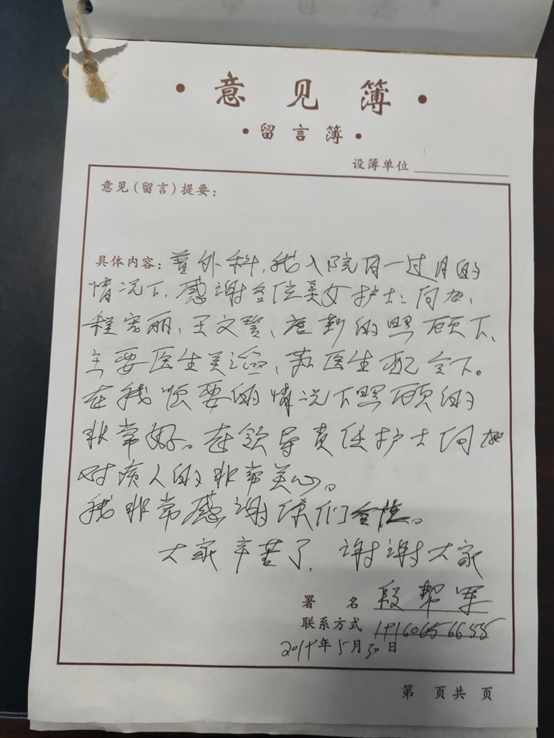 意见簿
留言簿
设薄单位
意见(留言)提要:
具体内容: 普外科,我入院月一过月的
情况下,感谢各位美女护士:何旭、
程宏丽、王文
的照顾下、
主要医生关治,苏医生配合下。
在我须要的情况下照顾的
非常好。在领导责任护士何旭
对病人的非常关心。
我非常感谢你们全体。
大家辛苦了,谢谢大家
署 名 段帮军
联系方式
年5月30日
第 页共 页